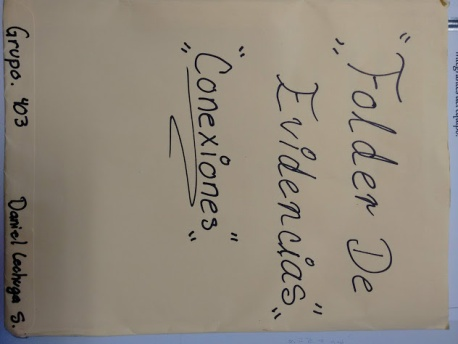 "Folder De
Evidencias"
"Conexiones"
Grupo. 403
Daniel Lechuga S.